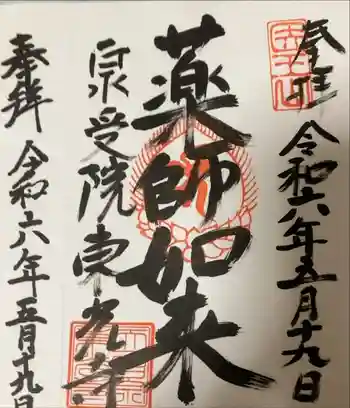 奉拝 令和六年五月十九日
薬師如来
泉受院東光寺
奉拝 令和六年五月十九日